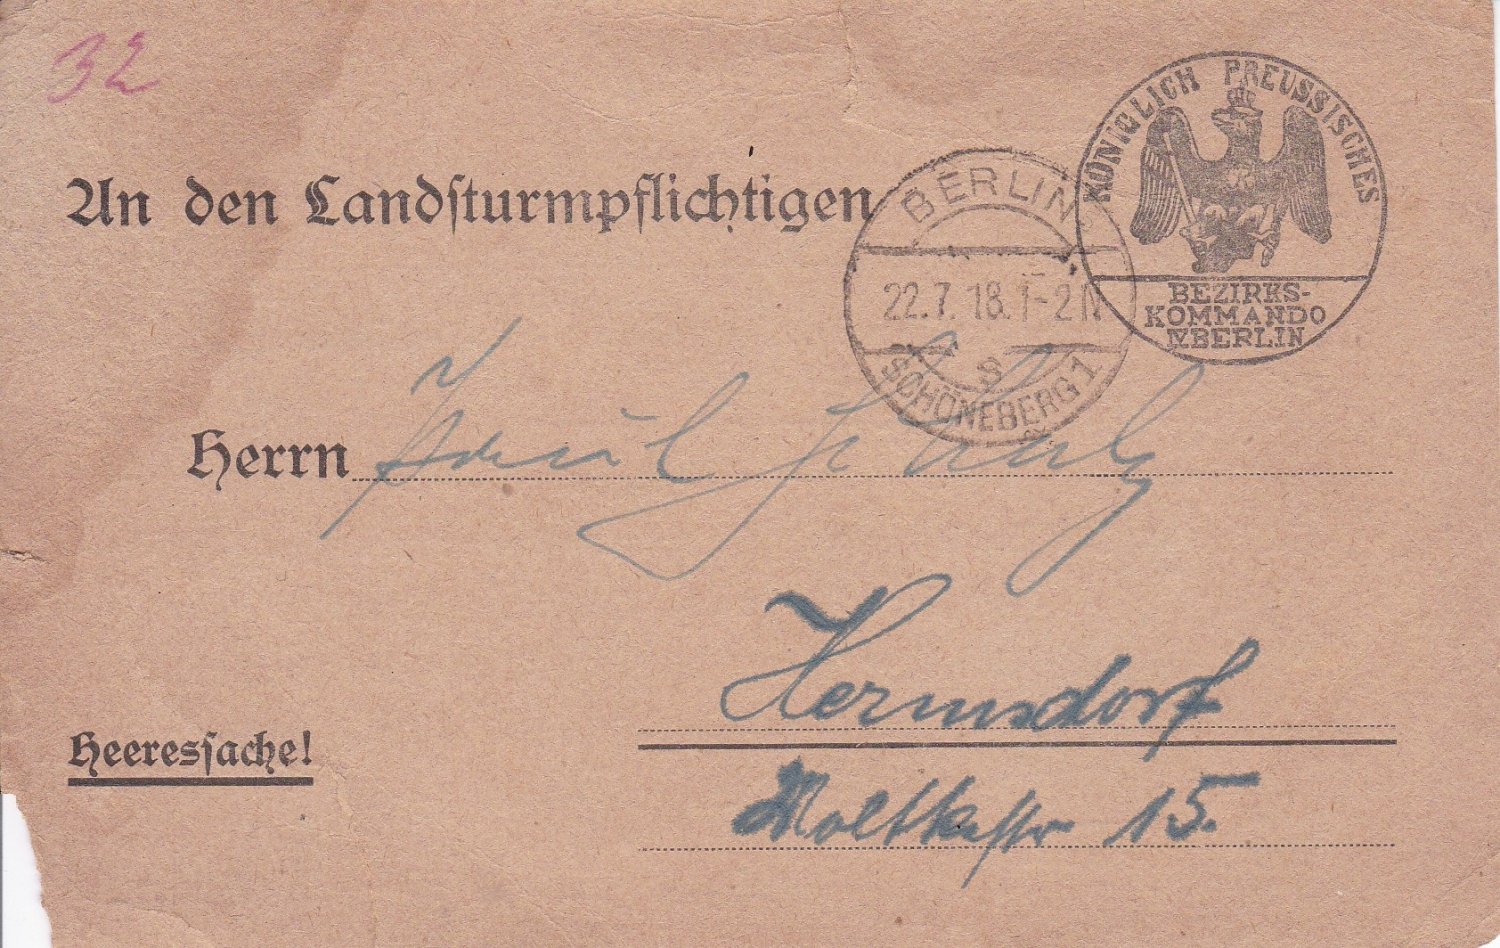 32
An den Landſturmpflichtigen
KÖNIGLICH PREUSSISCHES
BEZIRKS-
KOMMANDO
IV BERLIN
BERLIN
22.7.18. 1-2 N
S
SCHÖNEBERG 1
Herrn Paul
Hermsdorf
Heeresſache!
Moltkestr 15.